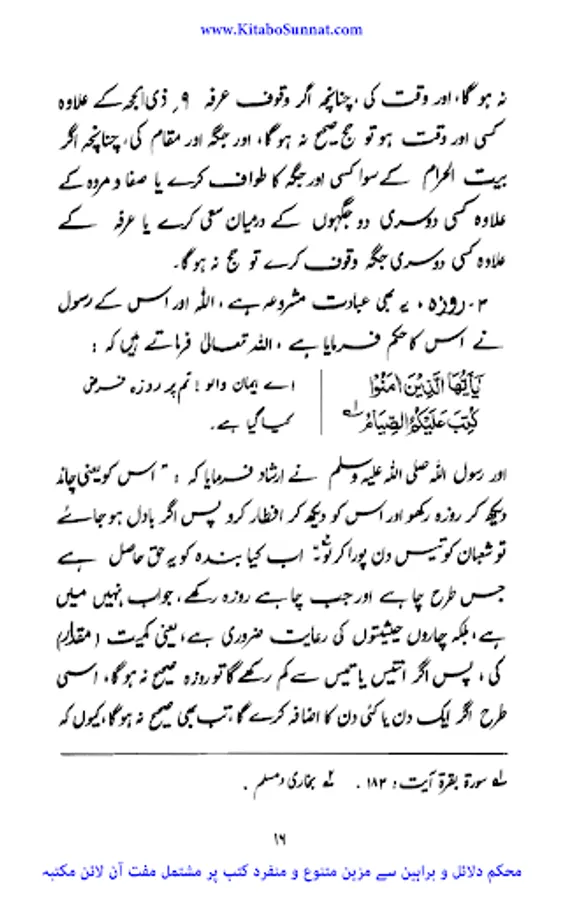 www.KitaboSunnat.com
نہ ہوگا، اور وقت کی، چنانچہ اگر وقوف عرفہ ۹ ذی الحجہ کے علاوہ
کسی اور وقت ہو تو حج صحیح نہ ہوگا، اور جگہ اور مقام کی، چنانچہ اگر
بیت الحرام کے سوا کسی اور جگہ کا طواف کرے یا صفا و مروہ کے
علاوہ کسی دوسری دو جگہوں کے درمیان سعی کرے یا عرفہ کے
علاوہ کسی دوسری جگہ وقوف کرے تو حج نہ ہوگا۔
۳۔ روزہ ، یہ بھی عبادت مشروعہ ہے، اللہ اور اس کے رسول
نے اس کا حکم فرمایا ہے، اللہ تعالیٰ فرماتے ہیں کہ :
یٰۤاَیُّهَا الَّذِیْنَ اٰمَنُوْا اے ایمان والو! تم پر روزہ فرض
كُتِبَ عَلَیْكُمُ الصِّیَامُ لے کیا گیا ہے۔
اور رسول اللہ صلی اللہ علیہ وسلم نے ارشاد فرمایا کہ : " اس کو یعنی چاند
دیکھ کر روزہ رکھو اور اس کو دیکھ کر افطار کرو پس اگر بادل ہو جائے
تو شعبان کو تیس دن پورا کر لو" اب کیا بندہ کو یہ حق حاصل ہے
جس طرح چاہے اور جب چاہے روزہ رکھے، جواب نہیں میں
ہے، بلکہ چاروں حیثیتوں کی رعایت ضروری ہے، یعنی کمیت (مقدار)
کی، پس اگر انتیس یا تیس سے کم رکھے گا تو روزہ صحیح نہ ہوگا، اسی
طرح اگر ایک دن یا کئی دن کا اضافہ کرے گا، تب بھی صحیح نہ ہوگا، کیوں کہ
لے سورۃ بقرۃ آیت : ۱۸۳ . ۲ے بخاری و مسلم .
۱۶
محکم دلائل و براہین سے مزین متنوع و منفرد کتب پر مشتمل مفت آن لائن مکتبہ